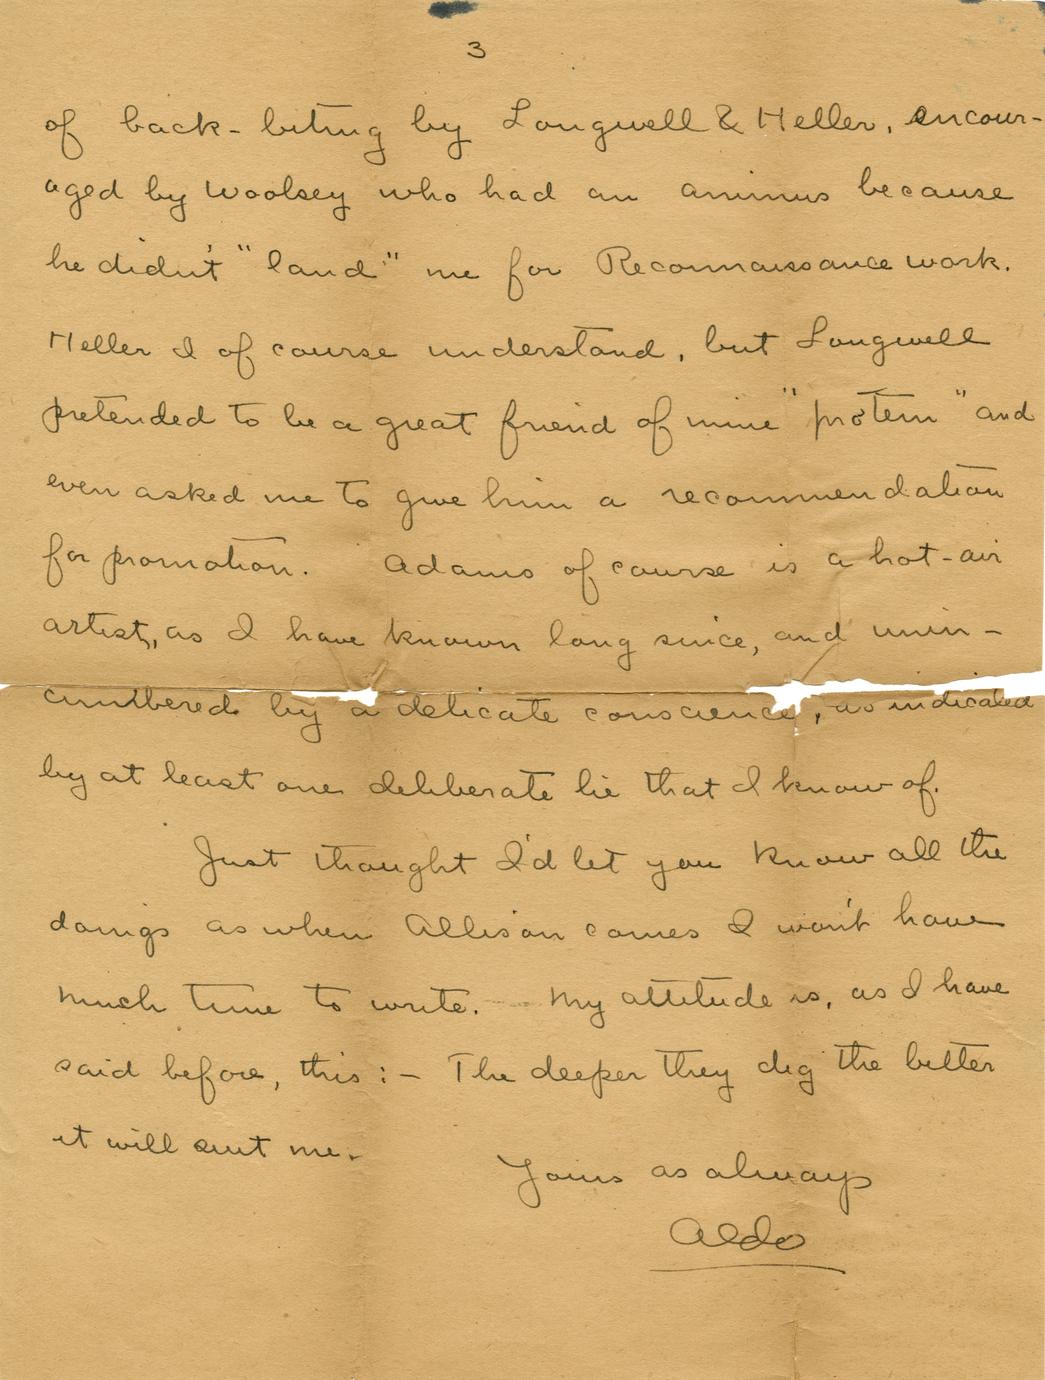 3
of back-biting by Longwell & Heller, encour-
aged by Woolsey who had an animus because
he didn't "land" me for Reconnaissance work.
Heller I of course understand, but Longwell
pretended to be a great friend of mine "protem" and
even asked me to give him a recommendation
for promotion. Adams of course is a hot-air
artist, as I have known long since, and unin-
cumbered by a delicate conscience, as indicated
by at least one deliberate lie that I know of.
Just thought I'd let you know all the
doings as when Allison comes I won't have
much time to write. My attitude is, as I have
said before, this :- The deeper they dig the better
it will suit me.
Yours as always
Aldo